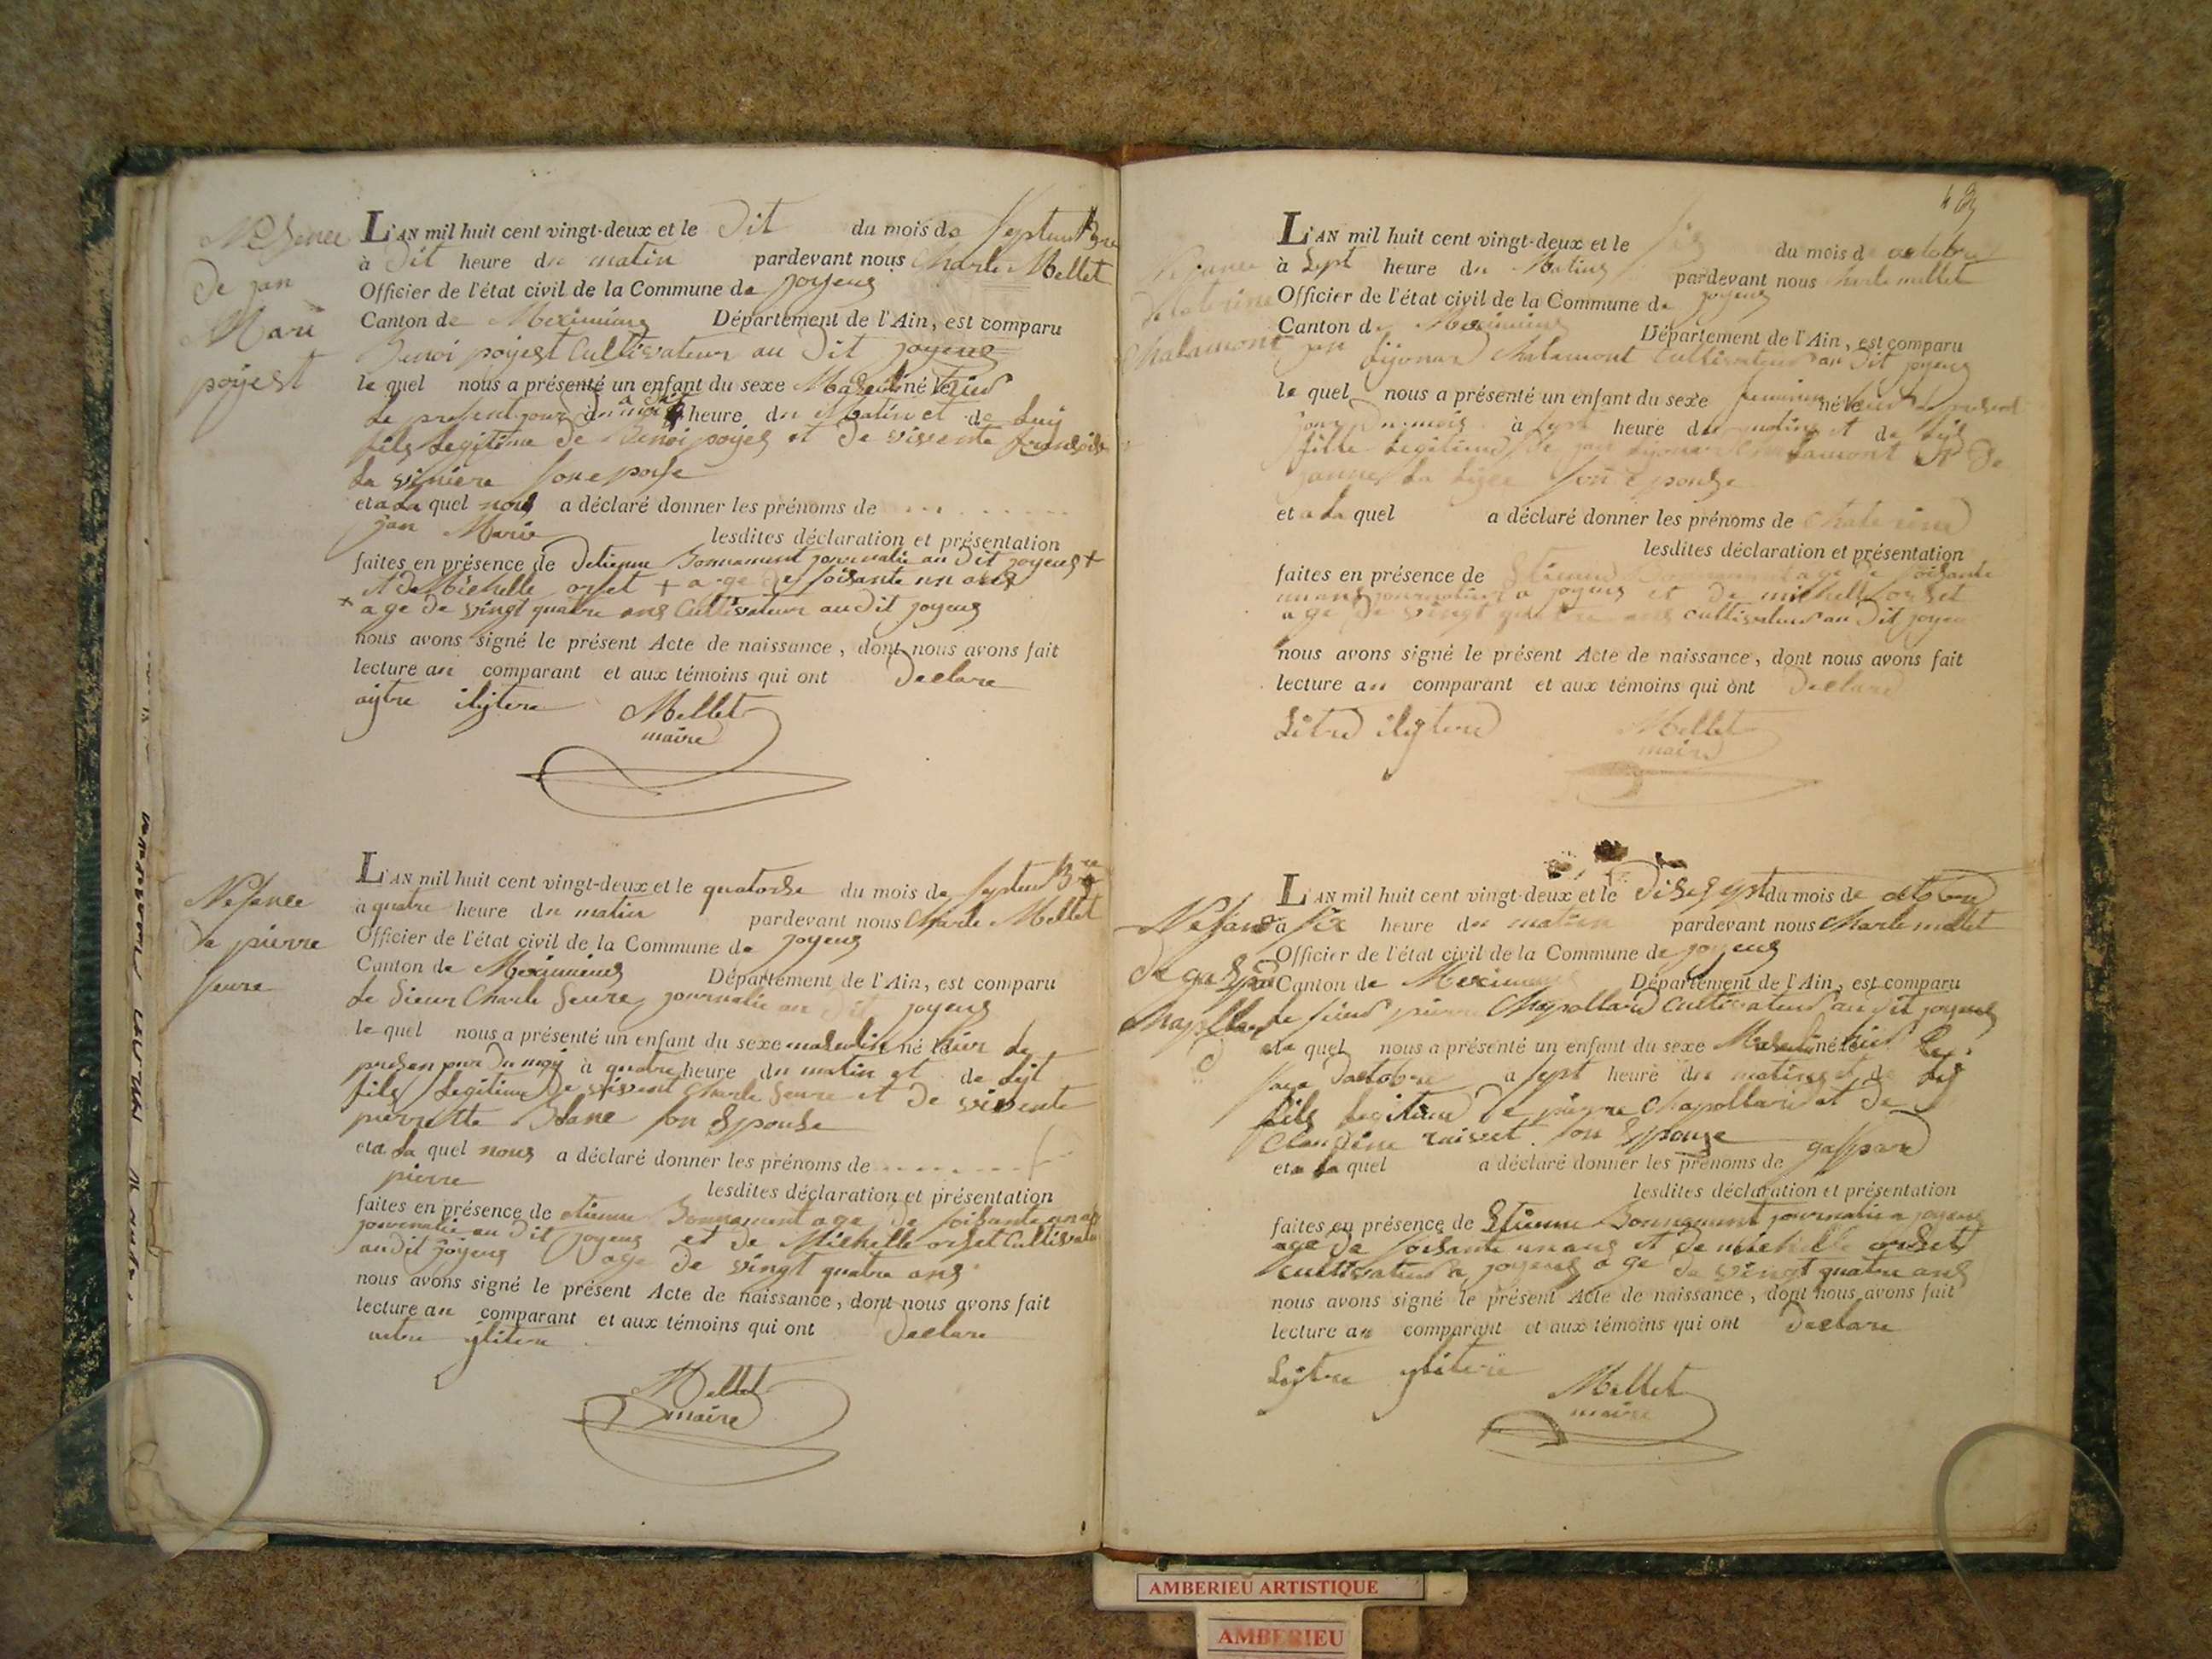 Nesence
de jan
Marie
poyest
L'AN mil huit cent vingt-deux et le dit du mois de septembre
à dit heure du matin pardevant nous Charle Mellet
Officier de l'état civil de la Commune de joyeus
Canton de Meximieus Département de l'Ain, est comparu
Benoi poyest Cultivateur au dit joyeus
le quel nous a présenté un enfant du sexe Masculin né
le present jour heure du Matin et de
fils legitime de Benoi poyes et de vivente
la viniere son eposse
et a la quel nous a déclaré donner les prénoms de
jan Marie lesdites déclaration et présentation
faites en présence de detienne Bonnament journalie au dit joyeus +
et de Michelle orset + age de soisante un ans
+ age de vingt quatre ans Cultivateur au dit joyeus
nous avons signé le présent Acte de naissance, dont nous avons fait
lecture au comparant et aux témoins qui ont declare
aytre ilytere Mellet
maire
Nesence
de pierre
seure
L'AN mil huit cent vingt-deux et le quatorse du mois de septembre
à quatre heure du matin pardevant nous Charle Mellet
Officier de l'état civil de la Commune de joyeus
Canton de Meximieus Département de l'Ain, est comparu
le sieur Charle seure journalie au dit joyeus
le quel nous a présenté un enfant du sexe masculin né
presen jour du moy à quatre heure du matin et de
fils legitime de vivent Charle seure et de vivente
pierrette Blanc son Epouse
et a la quel nous a déclaré donner les prénoms de
pierre lesdites déclaration et présentation
faites en présence de etienne Bonnament age de soisante un ans
journalie au dit joyeus et de Michelle orset Cultivateur
au dit joyeus age de vingt quatre ans
nous avons signé le présent Acte de naissance, dont nous avons fait
lecture au comparant et aux témoins qui ont declare
Mellet
maire
Chalamont
L'AN mil huit cent vingt-deux et le du mois d octobre
à sept heure du Matins pardevant nous Charle mellet
Officier de l'état civil de la Commune de joyeus
Canton de Meximieus Département de l'Ain, est comparu
jan Chalamont Cultivateur au dit joyeus
le quel nous a présenté un enfant du sexe feminin né le present
jour du mois à sept heure du matins et de
fille legitime de jan Chalamont et de
janne son epouse
et a la quel a déclaré donner les prénoms de
lesdites déclaration et présentation
faites en présence de Etienne Bonnament age de soisante
un ans journalier a joyeus et de michelle orset
age de vingt quatre ans cultivateur au dit joyeu
nous avons signé le présent Acte de naissance, dont nous avons fait
lecture au comparant et aux témoins qui ont declare
ilytere Mellet
maire
Nesance
de gaspar
Chapollar
d
L'AN mil huit cent vingt-deux et le disesept du mois de octobre
à six heure du matin pardevant nous Charle mellet
Officier de l'état civil de la Commune de joyeus
Canton de Meximieus Département de l'Ain, est comparu
le sieur pierre Chapollard Cultivateur au dit joyeus
le quel nous a présenté un enfant du sexe Masculin né
d'actobre à sept heure du matins et de
fils legitime de pierre Chapollard et de
Claudine raivet son Epouse
et a la quel a déclaré donner les prénoms de gaspard
lesdites déclaration et présentation
faites en présence de Etienne Bonnament journalie a joyeus
age de soisante un ans et de michelle orset
cultivateur a joyeus age de vingt quatre ans
nous avons signé le présent Acte de naissance, dont nous avons fait
lecture au comparant et aux témoins qui ont declare
Mellet
maire
AMBERIEU ARTISTIQUE
AMBERIEU